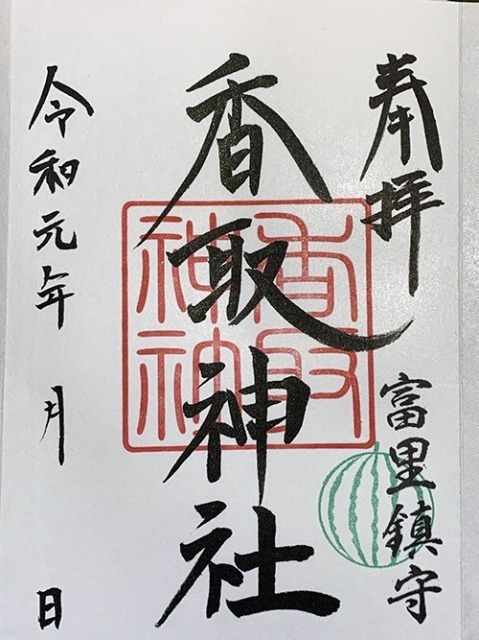 奉拝
富里鎮守
香取神社
香取神社
令和元年 月 日